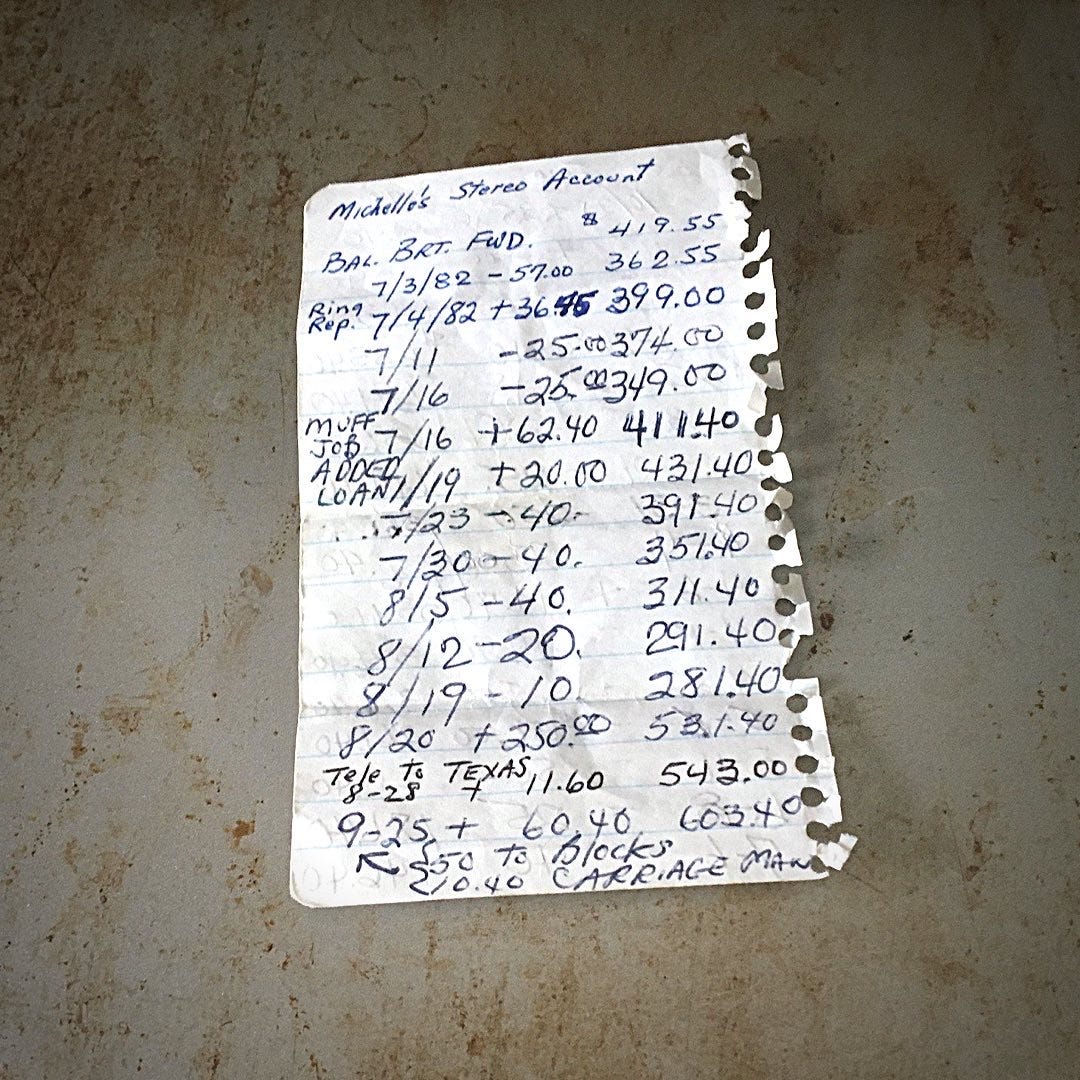 Michelle's Stereo Account
BAL. BRT. FWD. $ 419.55
7/3/82 -57.00 362.55
Ring Rep. 7/4/82 +36.45 399.00
7/11 -25.00 374.00
7/16 -25.00 349.00
MUFF JOB 7/16 +62.40 411.40
ADDED LOAN 7/19 +20.00 431.40
7/23 -40- 391.40
7/30 - 40. 351.40
8/5 -40. 311.40
8/12 -20. 291.40
8/19 - 10 281.40
8/20 +250.00 531.40
Tele to TEXAS
8-28 + 11.60 543.00
9-25 + 60.40 603.40
50 to Blocks
10.40 CARRIAGE MAN